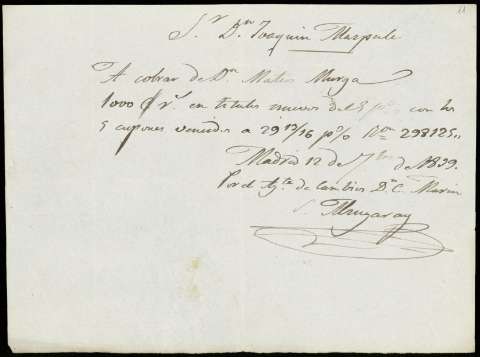 S.r D.n Joaquin Marpule
A cobrar de D.n Mateo Murga
1000 r.s en titulos nuevos del 5 p% con los
5 cupones vencidos a 29 13/16 p% 298125,,
Madrid 12 de 7bre de 1839.
Por el Ag.te de Cambios D.n C. Marin
S. Mugaray